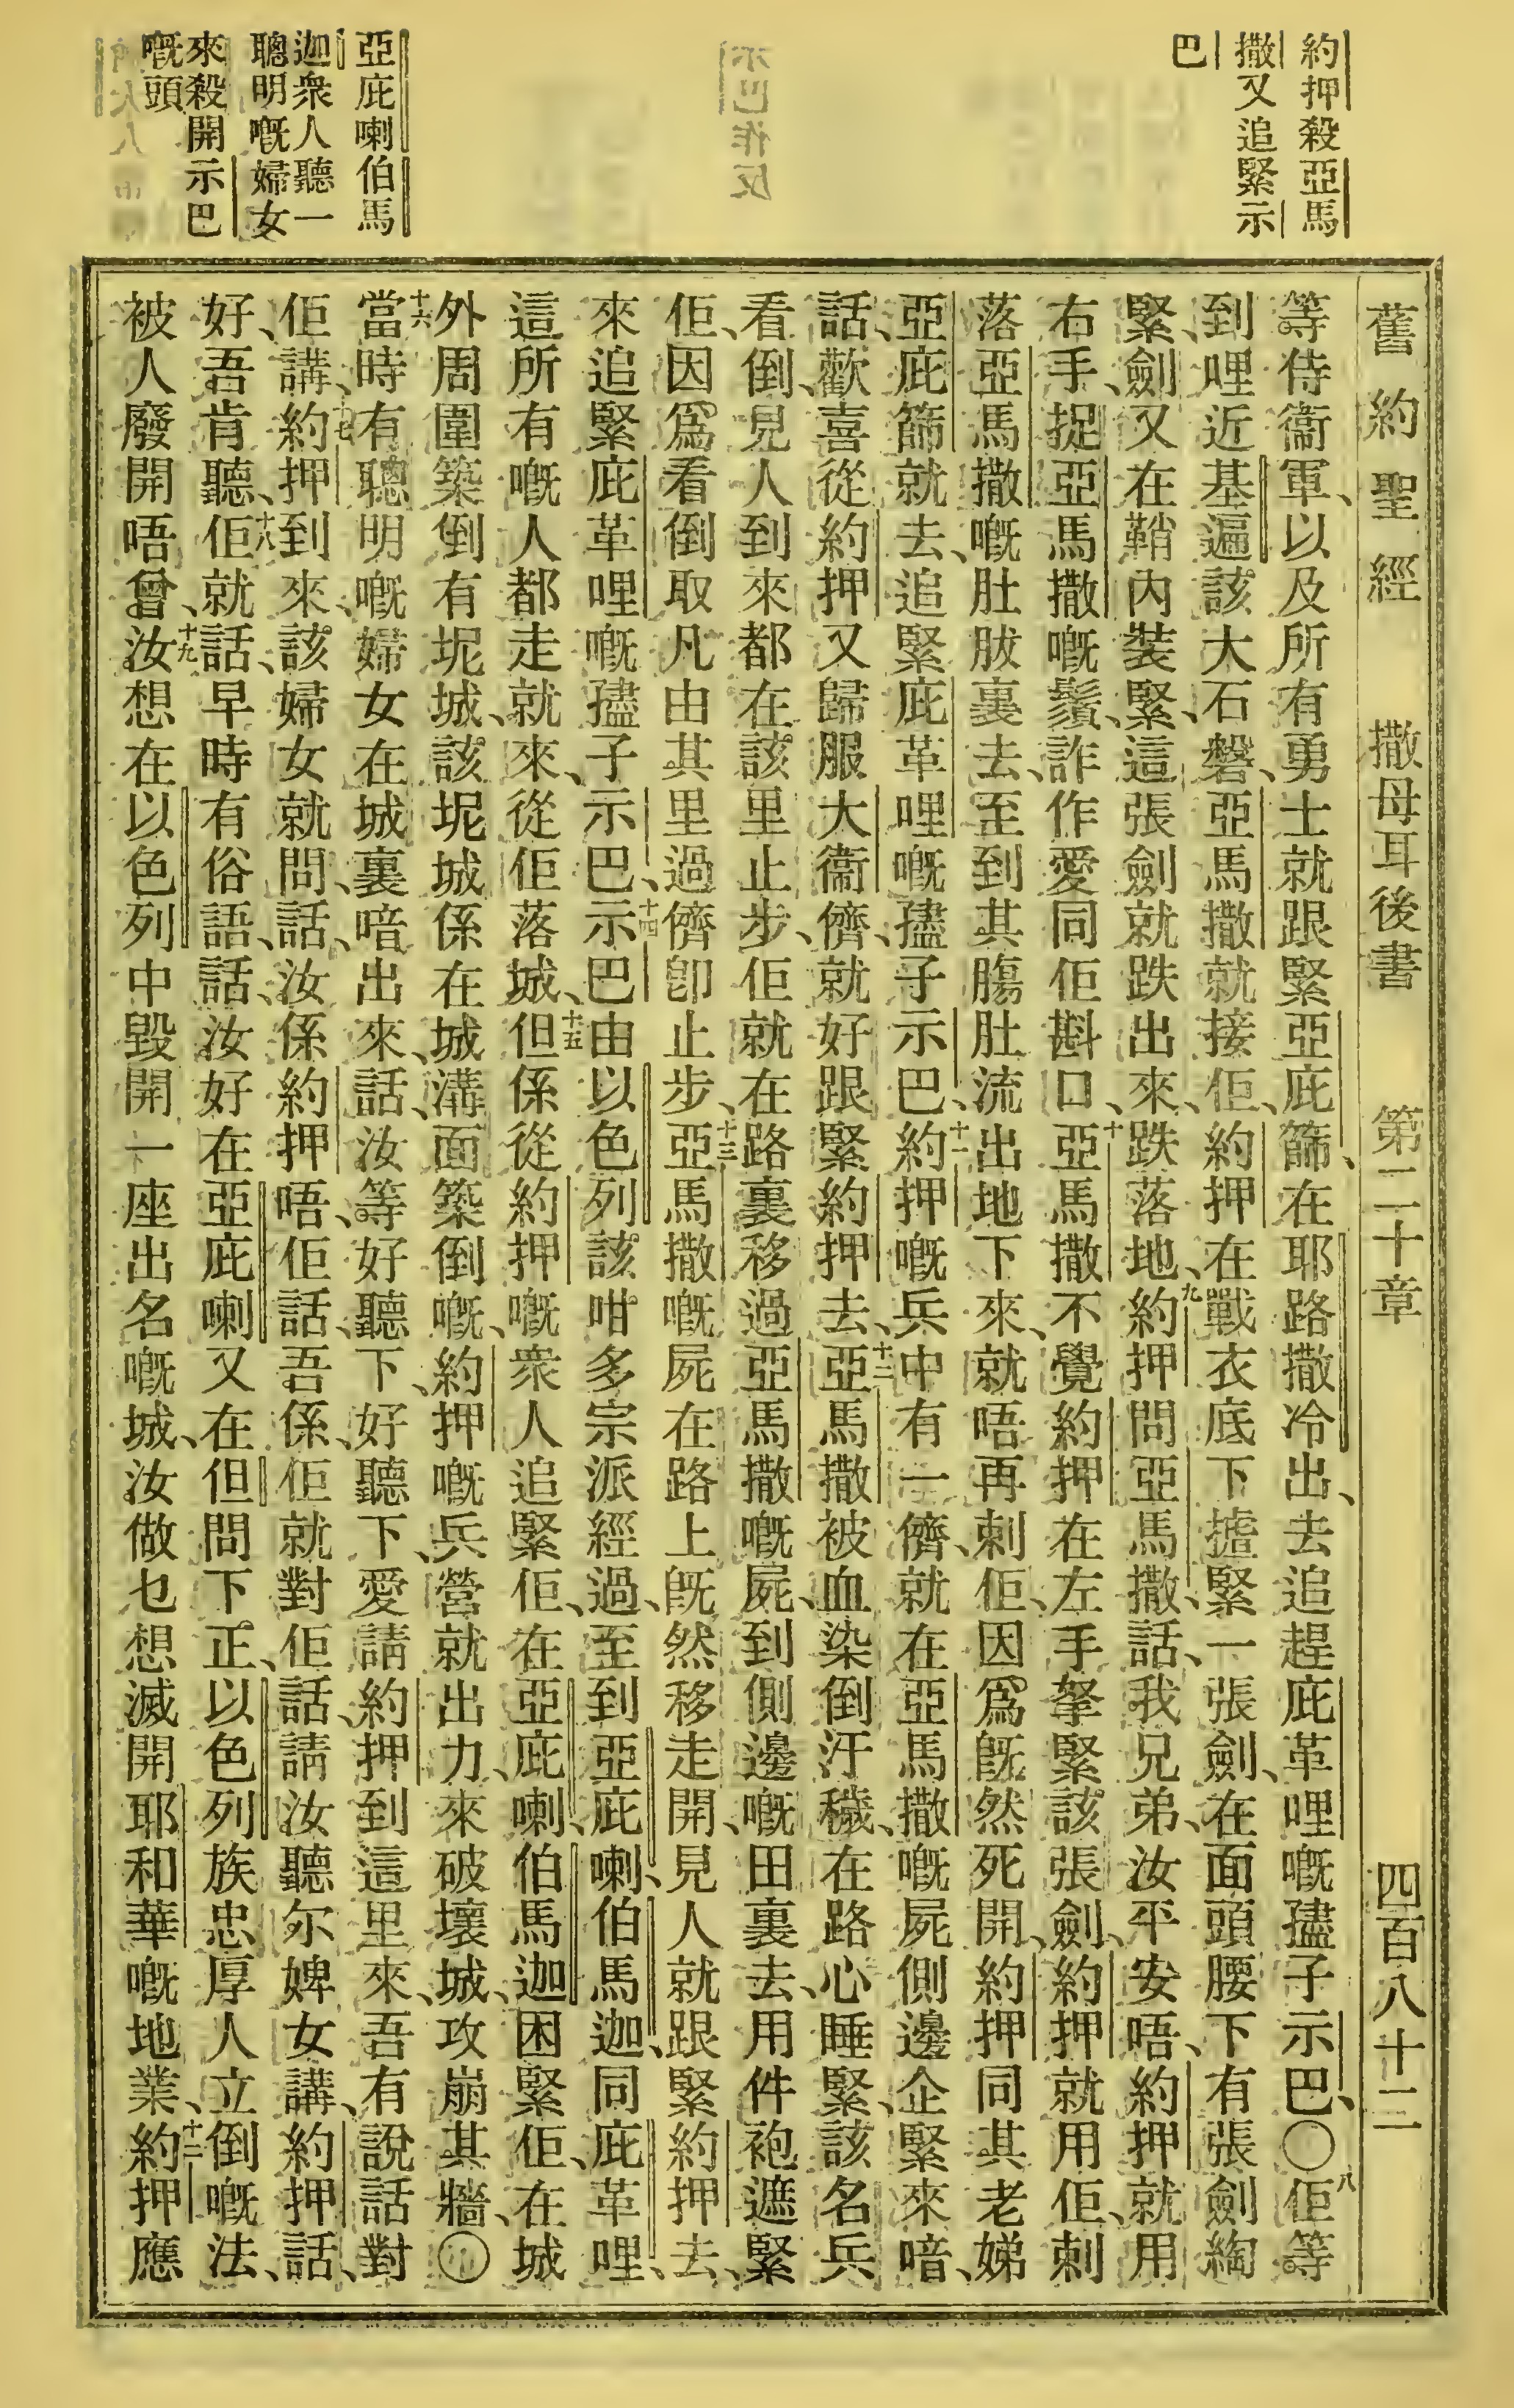 約押殺亞馬
撒又追緊示
巴
亞庇喇伯馬
迦衆人聽一
聰明嘅婦女
來殺開示巴
嘅頭
舊約聖經 撒母耳後書 第二十章 四百八十二
等侍衞軍、以及所有勇士就跟緊亞庇篩、在耶路撒冷出、去追趕庇革哩嘅孻子示巴、〇八佢等
到哩近基遍該大石磐、亞馬撒就接佢、約押在戰衣底下㨿緊一張劍、在面頭腰下有張劍綯
緊、劍又在鞘內裝緊、這張劍就跌出來、跌落地、九約押問亞馬撒、話、我兄弟、汝平安唔、約押就用
右手捉亞馬撒嘅鬚、詐作愛同佢斟口、十亞馬撒不覺約押在左手拏緊該張劍、約押就用佢、刺
落亞馬撒嘅肚胈裏去、至到其腸肚流出地下來、就唔再刺佢、因爲旣然死開、約押同其老娣
亞庇篩就去、追緊庇革哩嘅孻子示巴、十一約押嘅兵中有一儕、就在亞馬撒嘅屍側邊企緊來喑、
話、歡喜從約押又歸服大衞儕、就好跟緊約押去、十二亞馬撒被血染倒汙穢、在路心睡緊、該名兵
看倒、見人到來都在該里止步、佢就在路裏移過亞馬撒嘅屍、到側邊嘅田裏去、用件袍遮緊
佢、因爲看倒取凡由其里過儕卽止步、十三亞馬撒嘅屍在路上旣然移走開、見人就跟緊約押去、
來追緊庇革哩嘅孻子示巴、十四示巴由以色列該咁多宗派經過、至到亞庇喇、伯馬迦、同庇革哩、
這所有嘅人都走就來、從佢落城、十五但係從約押嘅、衆人追緊佢、在亞庇喇、伯馬迦困緊佢、在城
外周圍築倒有坭城、該坭城係在城溝面築倒嘅、約押嘅兵營就出力、來破壞城、攻崩其牆、〇
十六當時有聰明嘅婦女在城裏喑出來、話、汝等好聽下、好聽下、愛請約押到這里來、吾有說話對
佢講、十七約押到來、該婦女就問、話、汝係約押唔、佢話、吾係、佢就對佢話、請汝聽尔婢女講、約押話、
好、吾肯聽、十八佢就話、早時有俗語、話、汝好在亞庇喇又在但問下、正以色列族忠厚人立倒嘅法、
被人廢開唔曾、十九汝想在以色列中毀開一座出名嘅城、汝做乜想滅開耶和華嘅地業、二十約押應